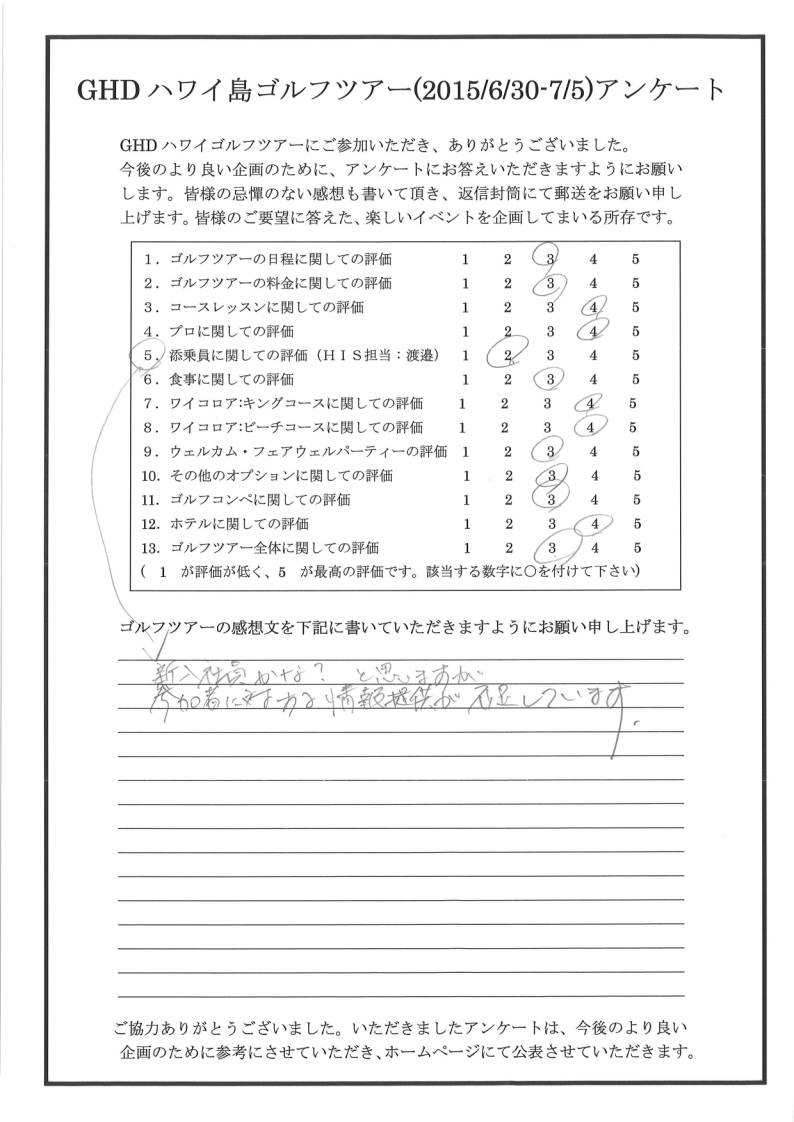 GHD ハワイ島ゴルフツアー(2015/6/30-7/5)アンケート
GHD ハワイゴルフツアーにご参加いただき、ありがとうございました。
今後のより良い企画のために、アンケートにお答えいただきますようにお願い
します。皆様の忌憚のない感想も書いて頂き、返信封筒にて郵送をお願い申し
上げます。皆様のご要望に答えた、楽しいイベントを企画してまいる所存です。
1．ゴルフツアーの日程に関しての評価 1 2 3 4 5
2．ゴルフツアーの料金に関しての評価 1 2 3 4 5
3．コースレッスンに関しての評価 1 2 3 4 5
4．プロに関しての評価 1 2 3 4 5
5．添乗員に関しての評価（ＨＩＳ担当：渡邉） 1 2 3 4 5
6．食事に関しての評価 1 2 3 4 5
7．ワイコロア:キングコースに関しての評価 1 2 3 4 5
8．ワイコロア:ビーチコースに関しての評価 1 2 3 4 5
9．ウェルカム・フェアウェルパーティーの評価 1 2 3 4 5
10．その他のオプションに関しての評価 1 2 3 4 5
11．ゴルフコンペに関しての評価 1 2 3 4 5
12．ホテルに関しての評価 1 2 3 4 5
13．ゴルフツアー全体に関しての評価 1 2 3 4 5
（ 1 が評価が低く、5 が最高の評価です。該当する数字に○を付けて下さい）
ゴルフツアーの感想文を下記に書いていただきますようにお願い申し上げます。
新入社員かな？ と思いますが
参加者に対する情報提供が不足しています．
ご協力ありがとうございました。いただきましたアンケートは、今後のより良い
企画のために参考にさせていただき、ホームページにて公表させていただきます。